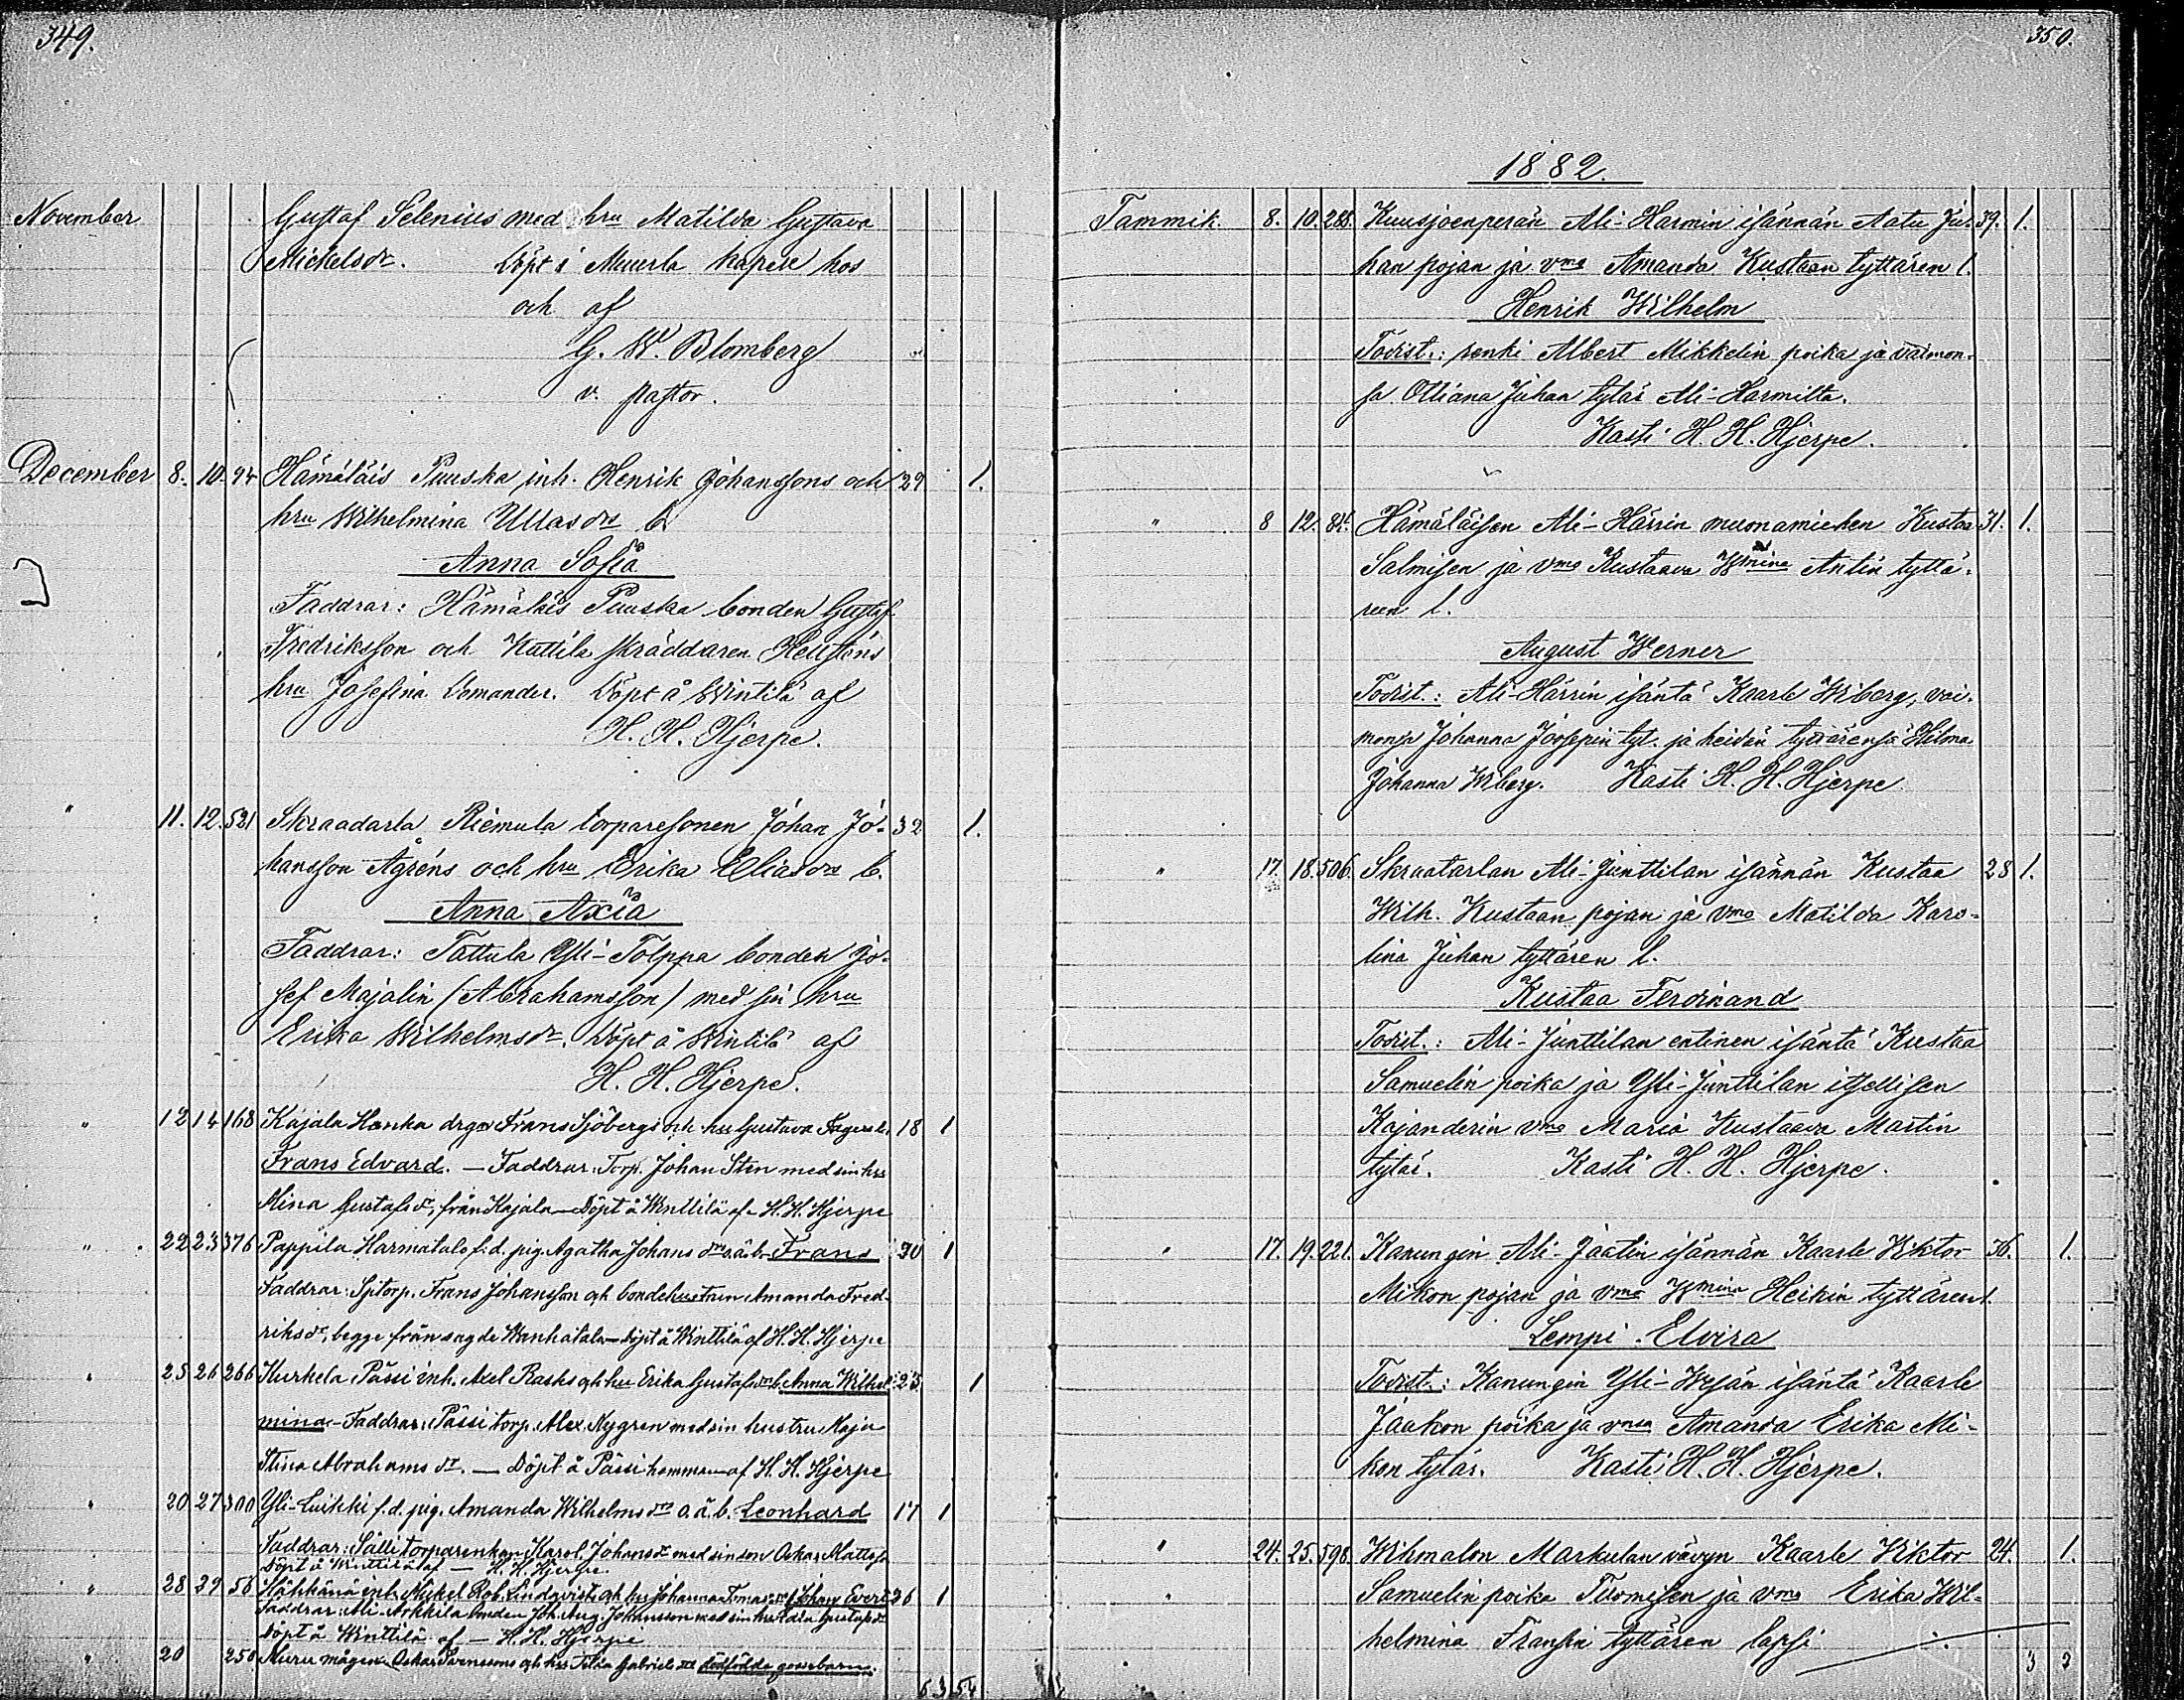 349.
November Gustaf Selenius med hru Matilda Gustava
Mickelsdr. Döpt i Muurla kapell hos
och af
G. W. Blomberg
v. pastor.
December 8. 10. 94 Hämäläis Puuska inh. Henrik Johanssons och 29 1.
hru Wilhelmina Ullasdrs b.
Anna Sofia
Faddrar: Hämäläis Puuska bonden Gustaf
Fredriksson och Kattila skräddaren
hru Josefina Lomander. Döpt å Wintilä af
H. H. Hjerpe.
" 11. 12. 521 Skraadarla Riemula torparesonen Johan Jo- 32 1.
hansson Ågréns och hru Erika Eliasdrs b.
Anna Axia
Faddrar: Tattula Yli-Tolppa bonden Jo-
sef Majalin (Abrahamsson) med sin hru
Erika Wilhelmsdr. Döpt å Wintilä af
H. H. Hjerpe.
" 12 14 168 Kajala Hanka drgn Frans Sjöbergs och hru Gustava b. 18 1
Frans Edvard. — Faddrar: Torp. Johan Sten med sin hru
Mina Gustafsdr, från Kajala — Döpt å Winttilä af H. H. Hjerpe
" 22 23 376 Pappila Harmatalo f.d. pig. Agatha Johansdrs o.ä.b. Frans 30 1
Faddrar: Sptorp. Frans Johansson och bondehustrun Amanda Fred-
riksdr, begge från sagde Wanhatalo — döpt å Winttilä af H. H. Hjerpe
" 25 26 266 Kurkela Pässi inh. Axel Rasks och hru Erika Gustafsdrs b. Anna Wilhel- 23 1
mina — Faddrar: Pässi torp. Alex. Nygren med sin hustru Maja
Stina Abrahamsdr. — Döpt å Pässi hemman af H. H. Hjerpe
" 20 27 300 Yli-Luikki f.d. pig. Amanda Wilhelmsdrs o.ä.b. Leonhard 17 1
Faddrar: Sälli torparenkan Karol. Johansdr med sin son Oskar Mattsson
Döpt å Winttilä af — H. H. Hjerpe.
" 28 29 56 Hähkänä inh. Mickel Rob. Lindqvists och hru Johanna Tomasdrs b. Johan Evert 26 1
Faddrar: Ali-Arkkila bonden Joh. Aug. Johansson med sin hru Gustafsdr
Döpt å Winttilä af — H. H. Hjerpe
" 20 250 Muru mågen Oskar Svenssons och hru Gabrielsdrs dödfödde gossebarn.
63 54
350.
1882.
Tammik. 8. 10. 288. Kuusjoenperän Ali-Harmin isännän Aatu Ju- 39. 1.
han pojan ja vmo Amanda Kustaan tyttären l.
Henrik Wilhelm
Todist.: renki Albert Mikkelin poika ja vaimon-
sa Ottiana Juhan tytär Ali-Harmilta.
Kasti H. H. Hjerpe.
" 8 12. 84. Hämäläisen Ali-Härrin muonamiehen Kustaa 31. 1.
Salmisen ja vmo Kustaava Wmina Antin tyttä-
ren l.
August Werner
Todist.: Ali-Härrin isäntä Kaarle Wiberg, vai-
monsa Johanna Joosepin tyt. ja heidän tyttärensä Hilma
Johanna Wiberg. Kasti H. H. Hjerpe
" 17. 18. 506. Skraatarlan Ali-Junttilan isännän Kustaa 28 1.
Wilh. Kustaan pojan ja vmo Matilda Karo-
lina Juhan tyttären l.
Kustaa Ferdinand
Todist.: Ali-Junttilan entinen isäntä Kustaa
Samuelin poika ja Yli-Junttilan itsellisen
Kajanderin vmo Maria Kustaava Martin
tytär. Kasti H. H. Hjerpe.
" 17. 19. 221. Kanungin Ali-Jaatin isännän Kaarle Wiktor 36. 1.
Mikon pojan ja vmo Wmina Heikin tyttären l.
Lempi Elvira
Todist.: Kanungin Yli-Wesän isäntä Kaarle
Jaakon poika ja vmsa Amanda Erika Mi-
kon tytär. Kasti H. H. Hjerpe.
" 24. 25. 598. Wihmalon Markulan vävyn Kaarle Wiktor 24. 1.
" Samuelin poika Tuomisen ja vmo Erika Wil-
helmina Fransin tyttären lapsi
3 2